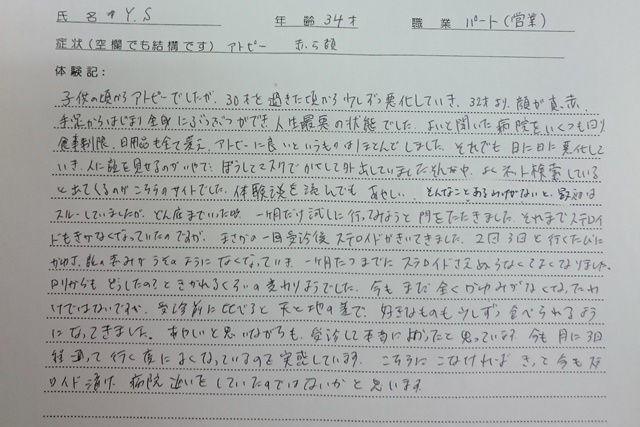 氏名 Y.S 年齢 34才 職業 パート(営業)
症状(空欄でも結構です) アトピー 赤ら顔
体験記:
子供の頃からアトピーでしたが、30才を過ぎた頃から少しずつ悪化していき、32才より、顔が真赤、
手足からはじまり全身にぶつぶつができ人生最悪の状態でした。よいと聞いた病院をいくつも回り
食事制限、日用品も全て変え、アトピーに良いというものはほとんどしました。それでも日に日に悪化して
いき、人に顔を見せるのがいやで、ぼうしてマスクでかくして外出していましたそんな中、よくネット検索している
と出てくるのがこちらのサイトでした。体験談を読んでも あやしい、そんなことあるわけがないと、最初は
スルーしていましたが、どん底までいった時 一ヶ月だけ試しに行ってみようと門をたたきました。それまでステロイ
ドもきかなくなっていたのですが、まさかの一回受診後ステロイドがきいてきました。2回3回と行くたびに
かゆさ、肌の赤みがうそのようになくなっていき、一ヶ月たつまでに ステロイドさえぬらなくてよくなりました。
回りからも どうしたの?ときかれるくらいの変わりようでした。今も まだ 全くかゆみがなくなったわ
けではないですが、受診前に比べると 天と地の差で、好きなものも少しずつ食べられるよう
になってきました。あやしいと思いながらも、受診して本当によかったと思っています 今も 月に3回
程通って行く度によくなっているのを実感しています。 こちらに こなければ きっと今もステ
ロイド漬け 病院通いをしていたのではないかと思います